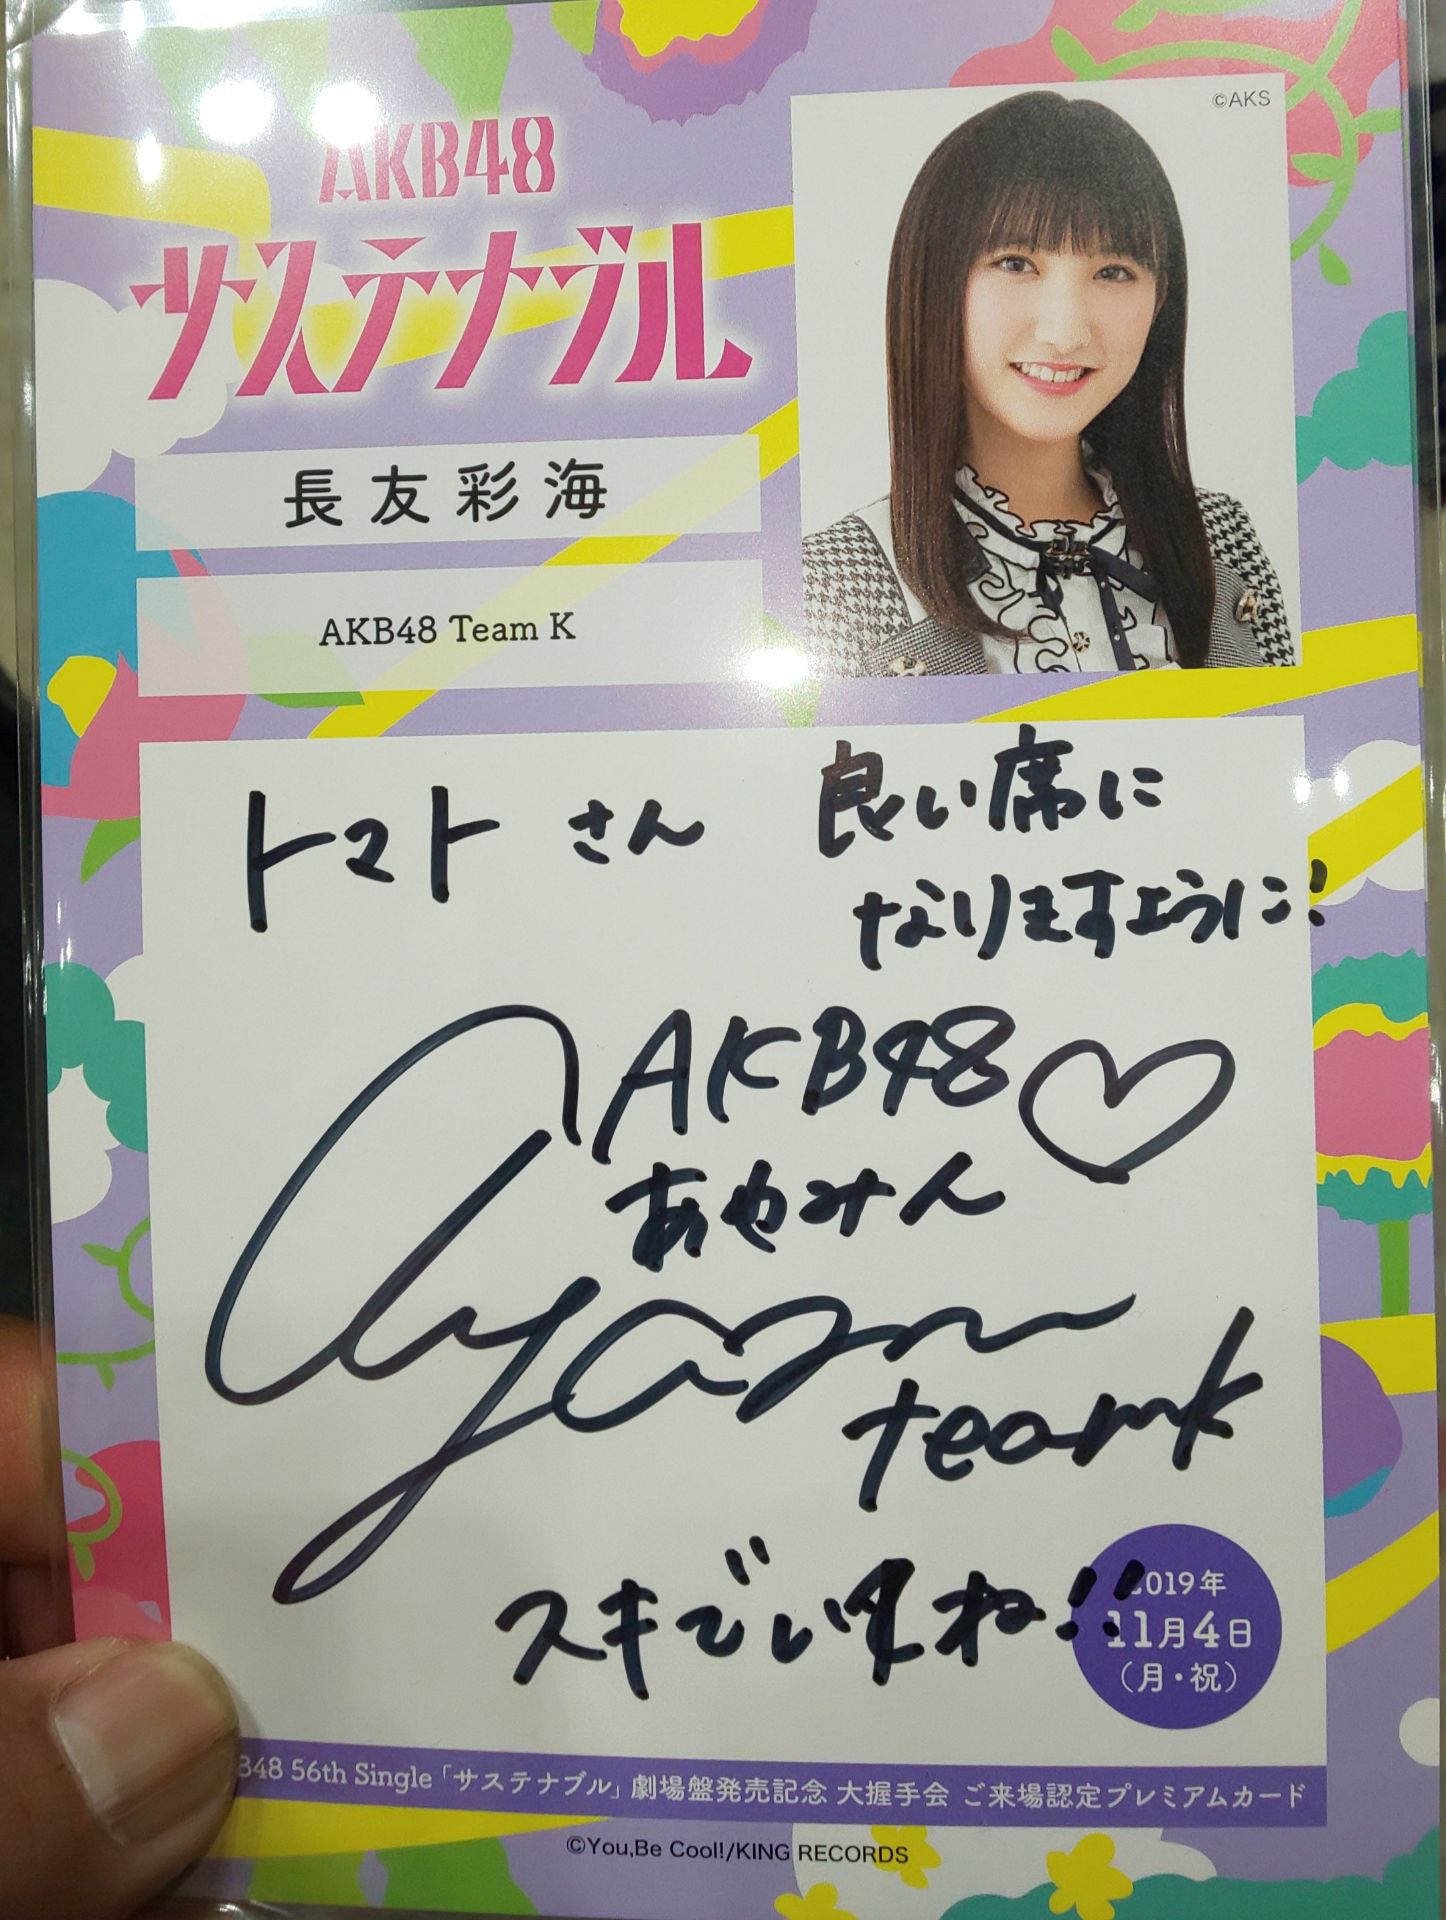 ©AKS
AKB48
サステナブル
長友彩海
AKB48 Team K
トマト さん
良い席に
なりますように!
AKB48♡
あやみん
teamK
2019年
11月4日
(月・祝)
B48 56th Single「サステナブル」劇場盤発売記念 大握手会 ご来場認定プレミアムカード
©You,Be Cool!/KING RECORDS